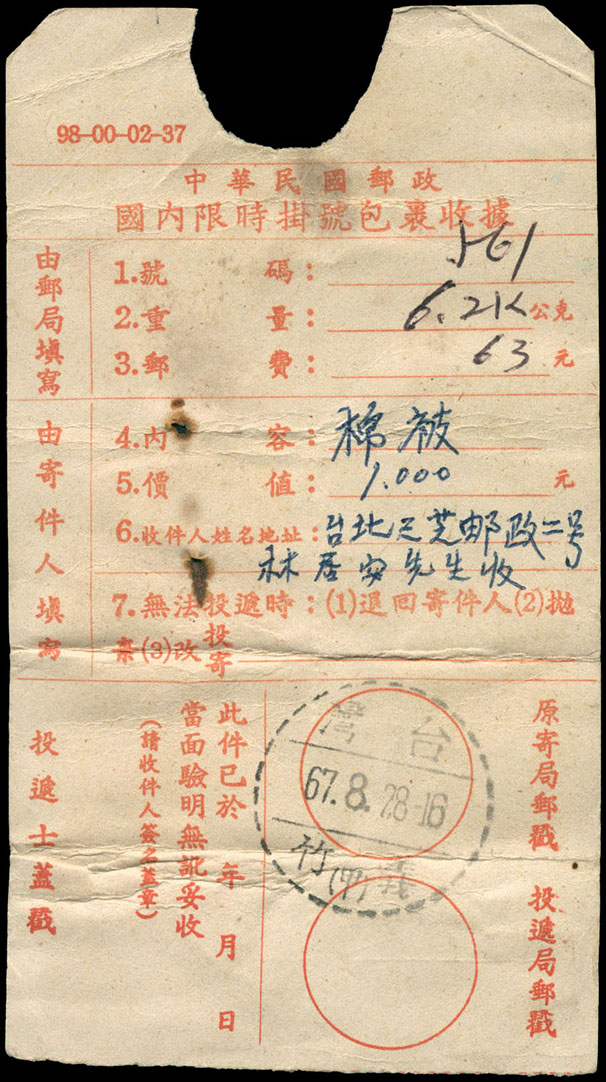 98-00-02-37
中華民國郵政
國內限時掛號包裹收據
由郵局填寫
1.號碼：561
2.重量：6.2K公克
3.郵費：63元
由寄件人填寫
4.內容：棉被
5.價值：1.000元
6.收件人姓名地址：台北三芝邮政二号
林居安先生收
7.無法投遞時：(1)退回寄件人(2)拋
棄(3)改投寄
原寄局郵戳
投遞局郵戳
台灣
67.8.28-16
竹(甲)
此件已於 年 月 日
當面驗明無訛妥收
(請收件人簽名蓋章)
投遞士蓋戳